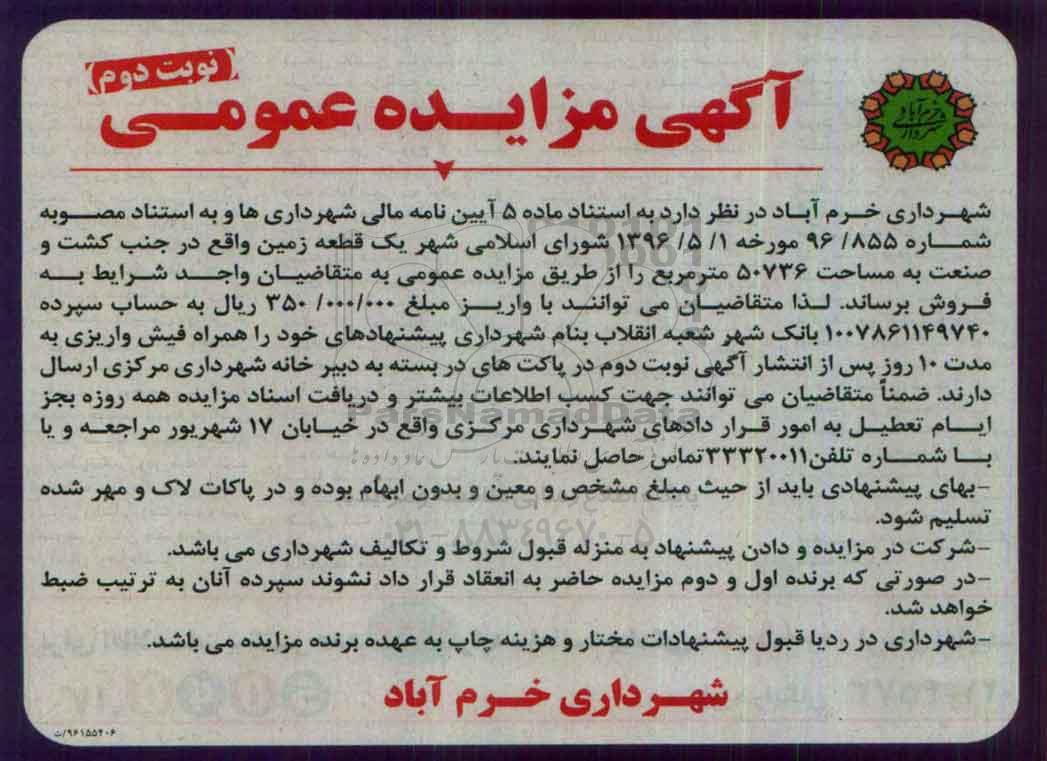 نوبت دوم
آگهی مزایده عمومی
شهرداری خرم آباد
شهرداری خرم آباد در نظر دارد به استناد ماده ۵ آیین نامه مالی شهرداری ها و به استناد مصوبه
شماره ۸۵۵/ ۹۶ مورخه ۱/ ۵/ ۱۳۹۶ شورای اسلامی شهر یک قطعه زمین واقع در جنب کشت و
صنعت به مساحت ۵۰۷۳۶ مترمربع را از طریق مزایده عمومی به متقاضیان واجد شرایط به
فروش برساند. لذا متقاضیان می توانند با واریز مبلغ ۰۰۰/۰۰۰/ ۳۵۰ ریال به حساب سپرده
۱۰۰۷۸۶۱۱۴۹۷۴۰ بانک شهر شعبه انقلاب بنام شهرداری پیشنهادهای خود را همراه فیش واریزی به
مدت ۱۰ روز پس از انتشار آگهی نوبت دوم در پاکت های در بسته به دبیر خانه شهرداری مرکزی ارسال
دارند. ضمناً متقاضیان می توانند جهت کسب اطلاعات بیشتر و دریافت اسناد مزایده همه روزه بجز
ایام تعطیل به امور قرار دادهای شهرداری مرکزی واقع در خیابان ۱۷ شهریور مراجعه و یا
با شماره تلفن۳۳۳۲۰۰۱۱تماس حاصل نمایند.
-بهای پیشنهادی باید از حیث مبلغ مشخص و معین و بدون ابهام بوده و در پاکات لاک و مهر شده
تسلیم شود.
-شرکت در مزایده و دادن پیشنهاد به منزله قبول شروط و تکالیف شهرداری می باشد.
-در صورتی که برنده اول و دوم مزایده حاضر به انعقاد قرار داد نشوند سپرده آنان به ترتیب ضبط
خواهد شد.
-شهرداری در ردیا قبول پیشنهادات مختار و هزینه چاپ به عهده برنده مزایده می باشد.
شهرداری خرم آباد
۹۶۱۵۵۴۰۶/ت
ParsNamadData
۰۲۱-۸۸۳۴۹۶۷۰-۵